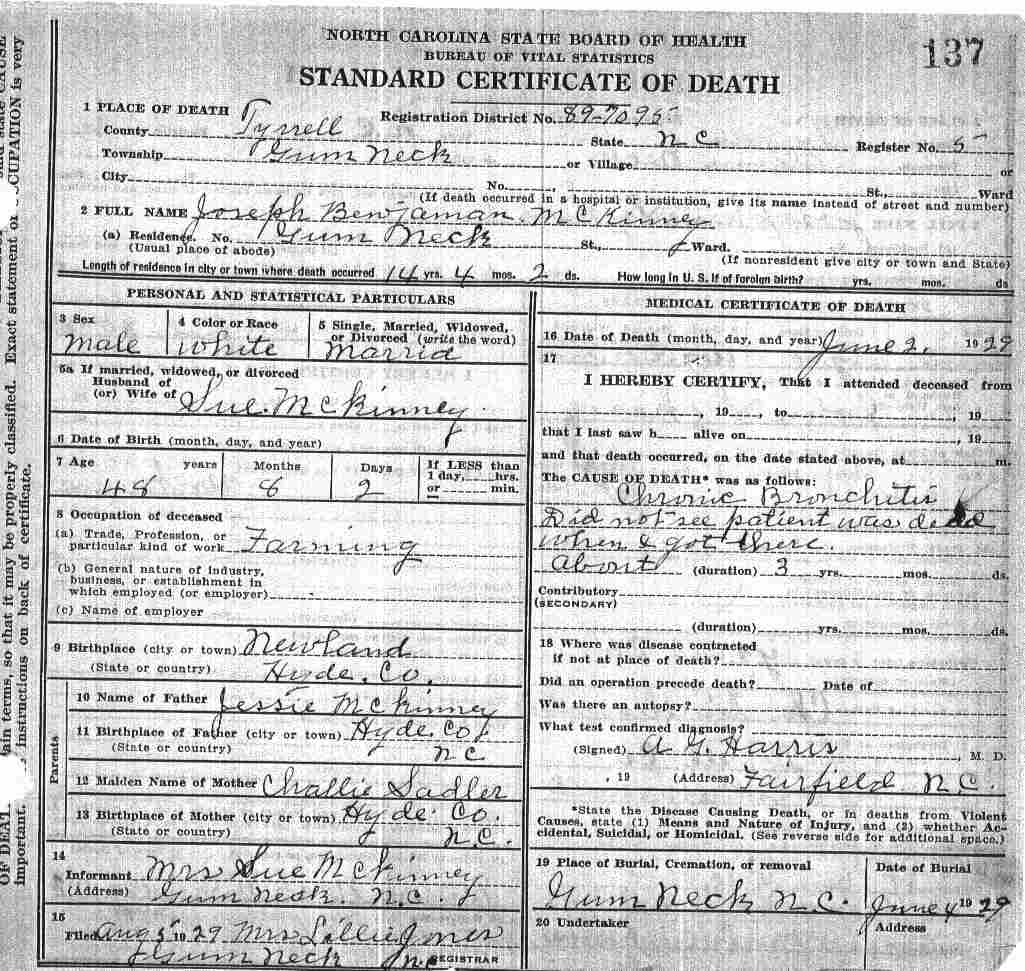 NORTH CAROLINA STATE BOARD OF HEALTH
BUREAU OF VITAL STATISTICS
STANDARD CERTIFICATE OF DEATH
137
1 PLACE OF DEATH
Registration District No. 89-7095
County Tyrrell State N C Register No. 5
Township Gum Neck or Village or
City No. , St., Ward
(If death occurred in a hospital or institution, give its name instead of street and number)
2 FULL NAME Joseph Benjaman McKinney
(a) Residence. No. Gum Neck St., Ward.
(Usual place of abode) (If nonresident give city or town and State)
Length of residence in city or town where death occurred 14 yrs. 4 mos. 2 ds. How long in U. S. if of foreign birth? yrs. mos. ds
PERSONAL AND STATISTICAL PARTICULARS
3 Sex
Male
4 Color or Race
White
5 Single, Married, Widowed,
or Divorced (write the word)
Marrid
5a If married, widowed, or divorced
Husband of
(or) Wife of Sue McKinney
6 Date of Birth (month, day, and year)
7 Age years Months Days
48 8 2
If LESS than
1 day, hrs.
or min.
8 Occupation of deceased
(a) Trade, Profession, or
particular kind of work Farming
(b) General nature of industry,
business, or establishment in
which employed (or employer)
(c) Name of employer
9 Birthplace (city or town) Newland
(State or country) Hyde. Co.
Parents
10 Name of Father Jessie McKinney
11 Birthplace of Father (city or town) Hyde. Co
(State or country) N C
12 Maiden Name of Mother Challie Sadler
13 Birthplace of Mother (city or town) Hyde Co.
(State or country) N.C.
14
Informant Mrs Sue McKinney
(Address) Gum Neck. N.C.
15
Filed Aug 5 1929 Mrs Lillie Jones
Gum Neck N.C REGISTRAR
MEDICAL CERTIFICATE OF DEATH
16 Date of Death (month, day, and year) June 2, 1929
17
I HEREBY CERTIFY, That I attended deceased from
, 19 , to , 19
that I last saw h alive on , 19
and that death occurred, on the date stated above, at m.
The CAUSE OF DEATH* was as follows:
Chronic Bronchitis
Did not see patient was dead
when I got there.
About (duration) 3 yrs. mos. ds.
Contributory
(SECONDARY)
(duration) yrs. mos. ds.
18 Where was disease contracted
if not at place of death?
Did an operation precede death? Date of
Was there an autopsy?
What test confirmed diagnosis?
(Signed) A G. Harris, M. D.
, 19 (Address) Fairfield N C.
*State the Disease Causing Death, or in deaths from Violent
Causes, state (1) Means and Nature of Injury, and (2) whether Ac-
cidental, Suicidal, or Homicidal. (See reverse side for additional space.)
19 Place of Burial, Cremation, or removal
Gum Neck N.C.
Date of Burial
June 4 1929
20 Undertaker
Address
CUPATION is very
Exact statement of
ain terms, so that it may be properly classified.
instructions on back of certificate.
OF DEAT
important.